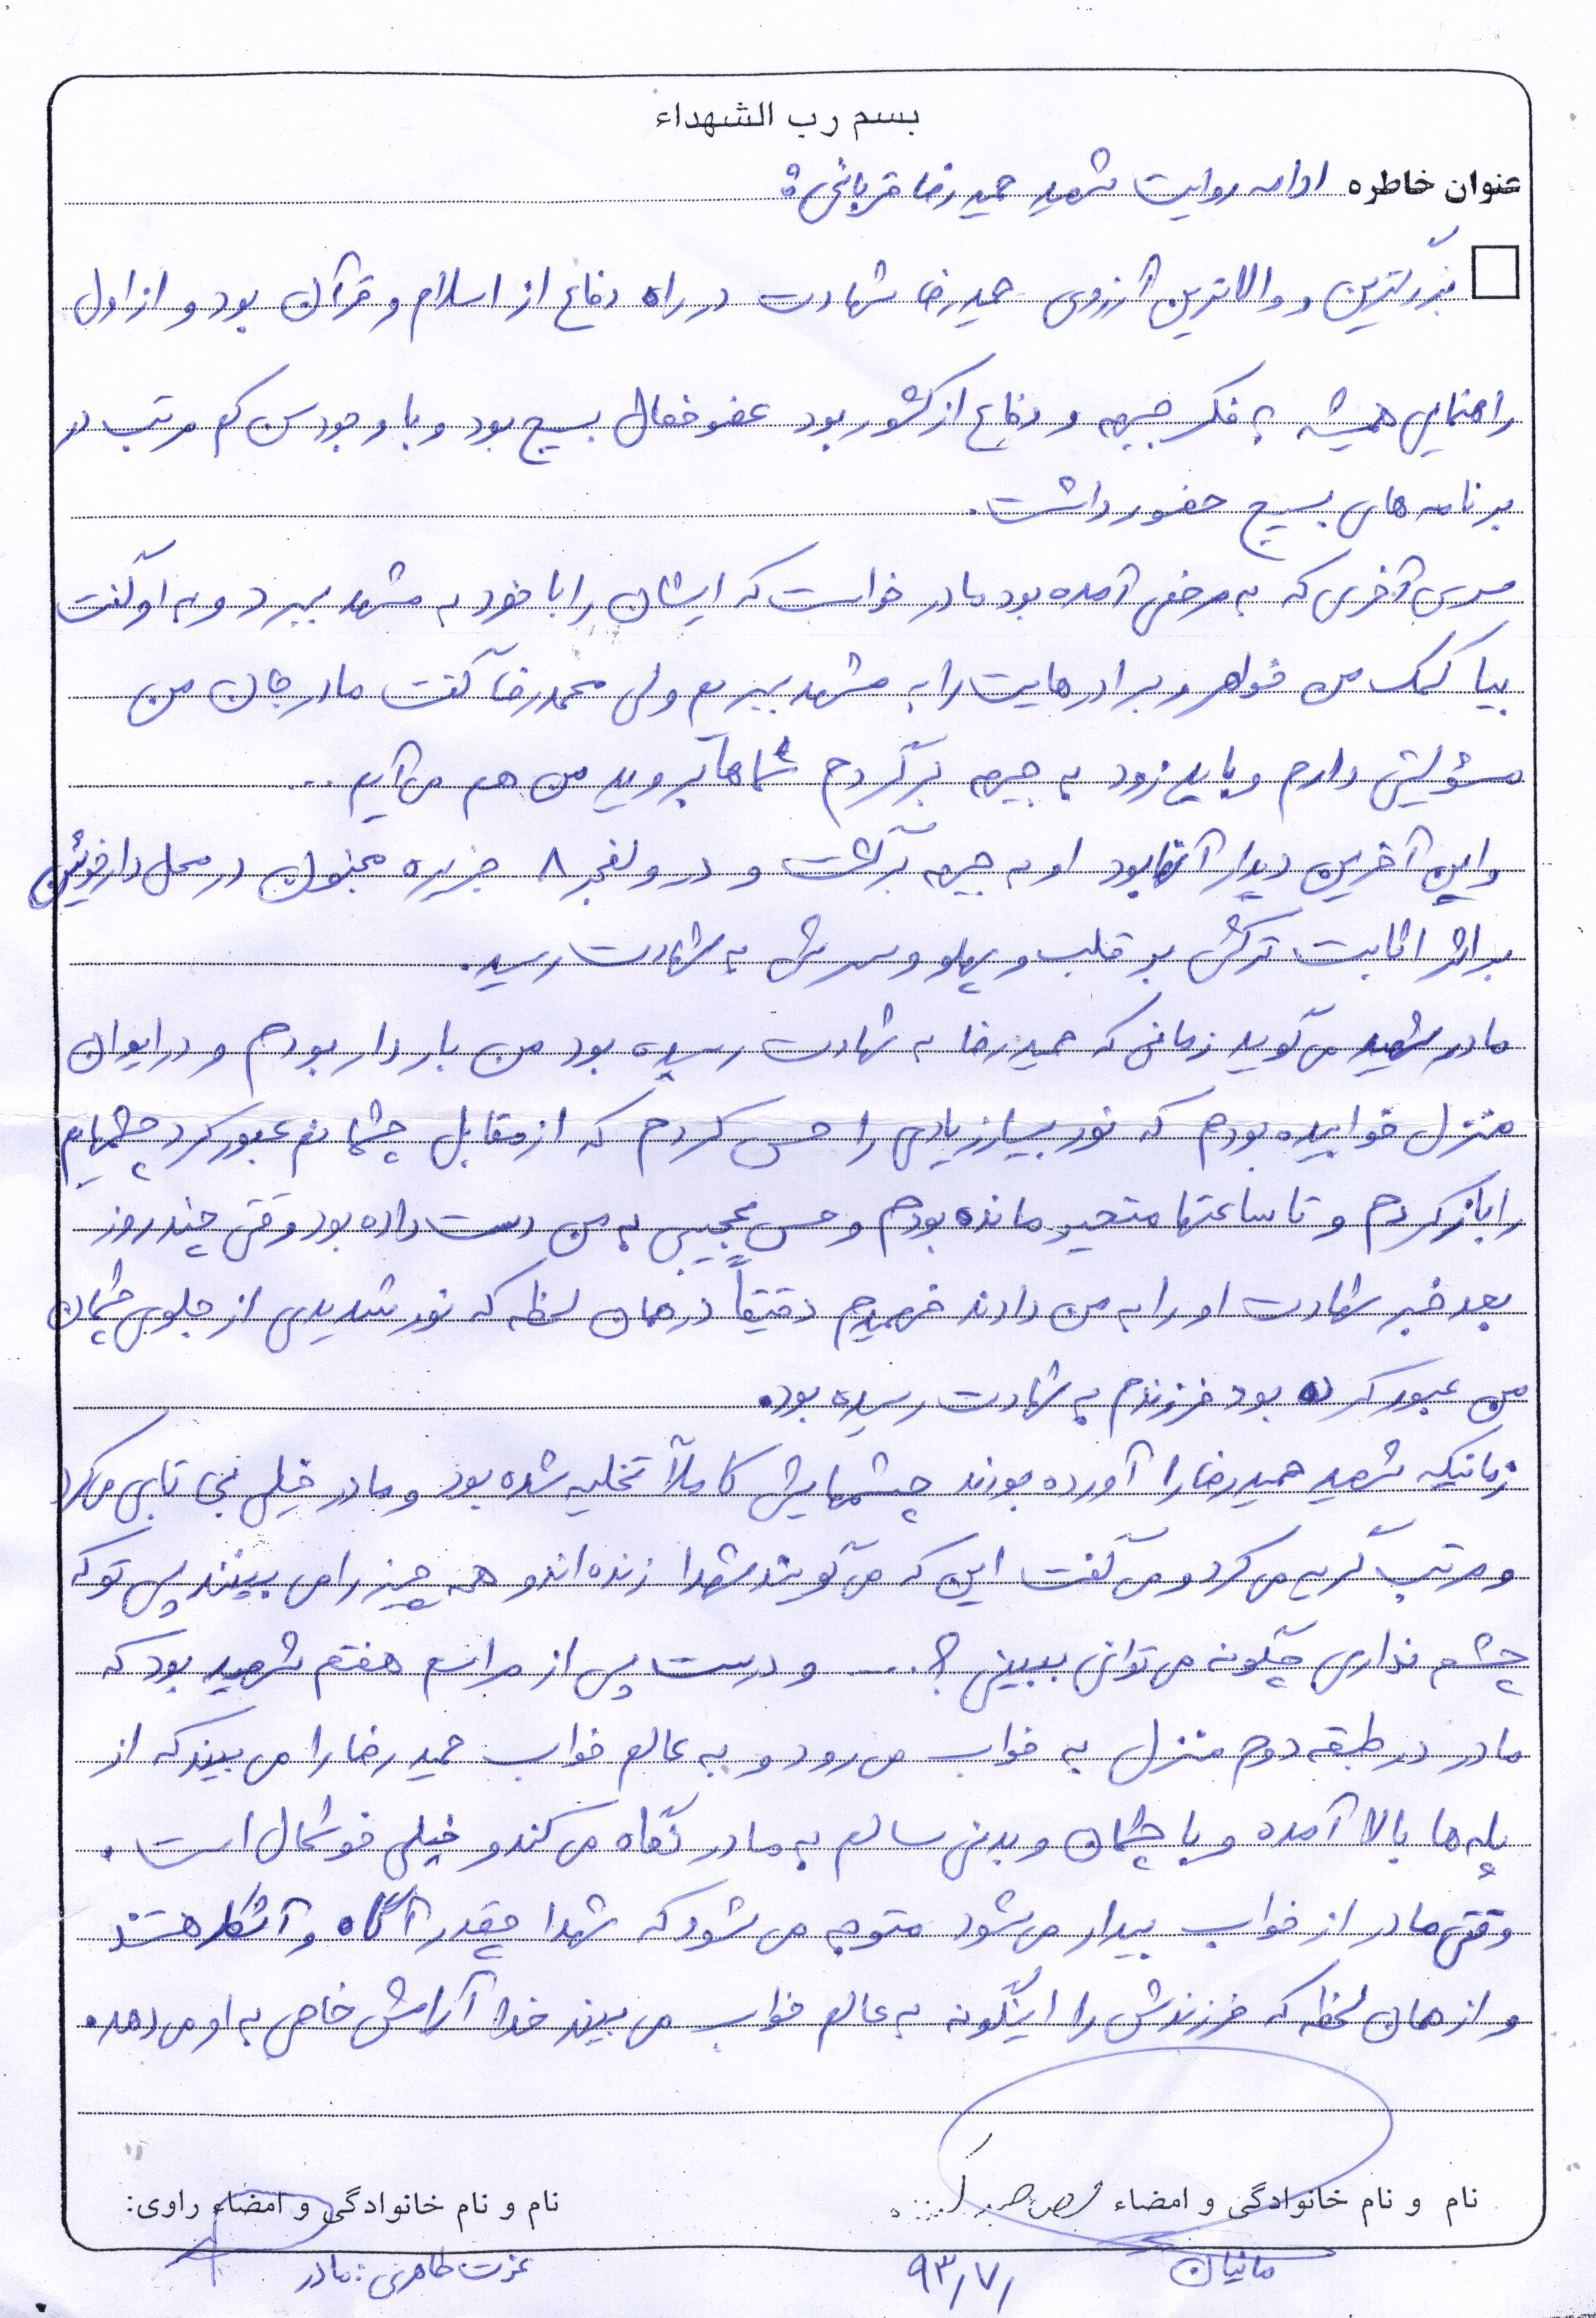 بسم رب الشهداء
عنوان خاطره ادامه روایت شهید حمید رضا قربانی:
بزرگترین و والاترین آرزوی حمیدرضا شهادت در راه دفاع از اسلام و قرآن بود و از اول
راهنمایی همیشه به فکر جبهه و دفاع از کشور بود عضو فعال بسیج بود و با وجود سن کم مرتب در
برنامه های بسیج حضور داشت.
سری آخری که به مرخصی آمده بود مادر خواست که ایشان را با خود به مشهد ببرد و به او گفت
بیا کمک من خواهر و برادرهایت را به مشهد ببریم ولی محمدرضا گفت مادر جان من
مسؤلیتی دارم و باید زود به جبهه برگردم شماها بروید من هم می آیم ...
و این آخرین دیدار آنها بود او به جبهه برگشت و در والفجر ۸ جزیره مجنون در محل دارخوئین
بر اثر اثابت ترکش بر قلب و پهلو و سرش به شهادت رسید.
مادر شهید می گوید زمانی که حمیدرضا به شهادت رسیده بود من باردار بودم و در ایوان
منزل خوابیده بودم که نور بسیار زیادی را حس کردم که از مقابل چشمانم عبور کرد چشمهایم
را باز کردم و تا ساعتها متحیر مانده بودم و حس عجیبی به من دست داده بود وقتی چند روز
بعد خبر شهادت او را به من دادند فهمیدم دقیقاً در همان لحظه که نور شدیدی از جلوی چشمان
من عبور کرده بود فرزندم به شهادت رسیده بود.
زمانیکه شهید حمیدرضا را آورده بودند چشمهایش کاملاً تخلیه شده بود و مادر خیلی بی تابی می کرد
و مرتب گریه می کرد و می گفت این که می گویند شهدا زنده اند و همه چیز را می بینند پس تو که
چشم نداری چگونه می توانی ببینی ؟ .... و درست پس از مراسم هفتم شهید بود که
مادر در طبقه دوم منزل به خواب می رود و به عالم خواب حمید رضا را می بیند که از
پله ها بالا آمده و با چشمان و بدنی سالم به مادر نگاه می کند و خیلی خوشحال است.
وقتی مادر از خواب بیدار می شود متوجه می شود که شهدا چقدر آگاه و آشکار هستند
و از همان لحظه که فرزندش را اینگونه به عالم خواب می بیند خدا آرامش خاصی به او می دهد.
نام و نام خانوادگی و امضاء
نام و نام خانوادگی و امضاء راوی:
مانیان
۹۳/۷/
عزت طاهری: مادر